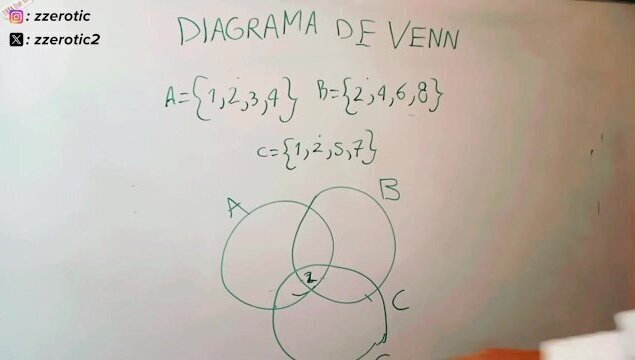 : zzerotic
: zzerotic2
DIAGRAMA DE VENN
A={1,2,3,4} B={2,4,6,8}
C={1,2,5,7}
A
B
2
C